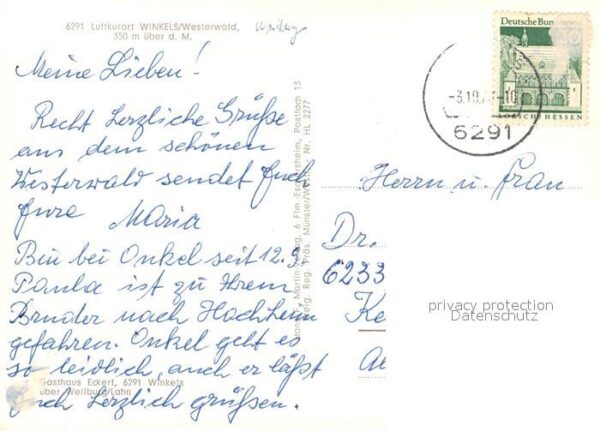 6291 Luftkurort WINKELS/Westerwald,
350 m über d. M.
Meine Lieben!
Recht herzliche Grüße
aus dem schönen
Westerwald sendet Euch
Eure Maria
Bin bei Onkel seit 12.9
Paula ist zu Ihrem
Bruder nach Hochheim
gefahren. Onkel geht es
so leidlich, auch er läßt
Euch herzlich grüßen.
Gasthaus Eckert, 6291 Winkels
über Weilburg/Lahn
Martin Verlag, 6 Ffm.-Eschersheim, Postfach 13
Reg. Präs. Münster/Westf. Nr. HL 2277
Deutsche Bun
LORSCH HESSEN
6291
Herrn u. Frau
Dr.
6233
Ke
privacy protection
Datenschutz